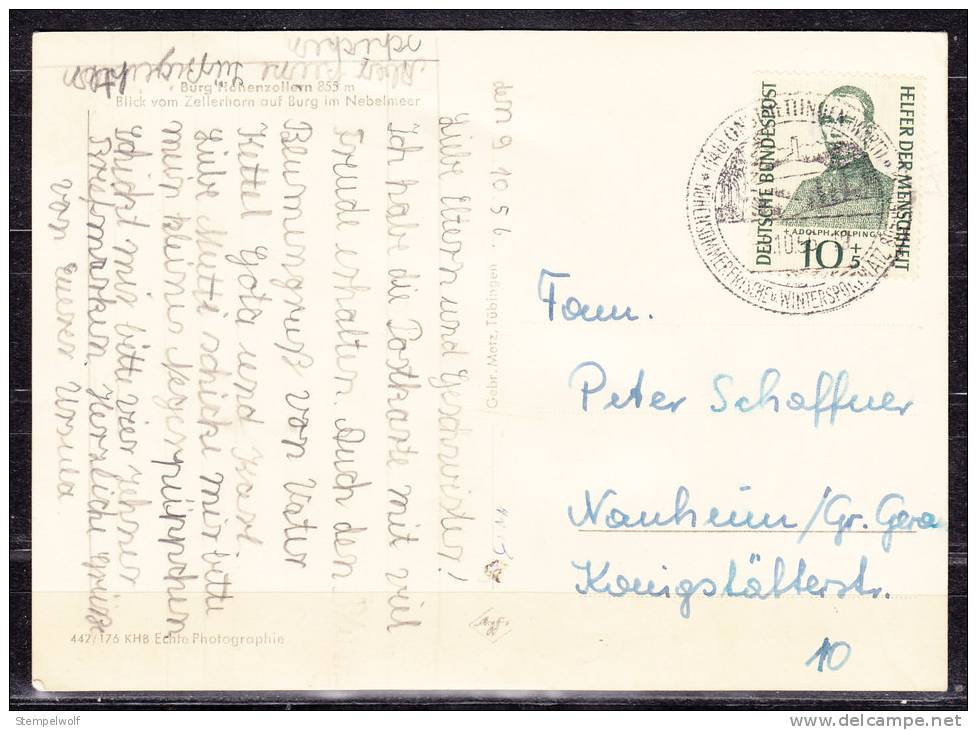 Burg Hohenzollern 855 m
Blick vom Zellerhorn auf Burg im Nebelmeer
den 9. 10. 56.
Liebe Eltern und Geschwister!
Ich habe die Postkarte mit viel
Freude erhalten. Auch den
von Vater
Kettel Gota und Karl
Liebe Mutti schicke mir bitte
mein kleines Negerpüppchen
Schickt mir bitte vier Zehner
Briefmarken. Herzliche Grüße
von Eurer Ursula
aber keine
schicken
442/176 KHB Echte Photographie
Gebr. Metz, Tübingen
DEUTSCHE BUNDESPOST
HELFER DER MENSCHHEIT
ADOLPH KOLPING
10+5
HÖHENSOMMERFRISCHE u. WINTERSPORTPLATZ
Fam.
Peter Schaffner
Nauheim/Gr. Gerau
Königstätterstr.
10
Stempelwolf
www.delcampe.net